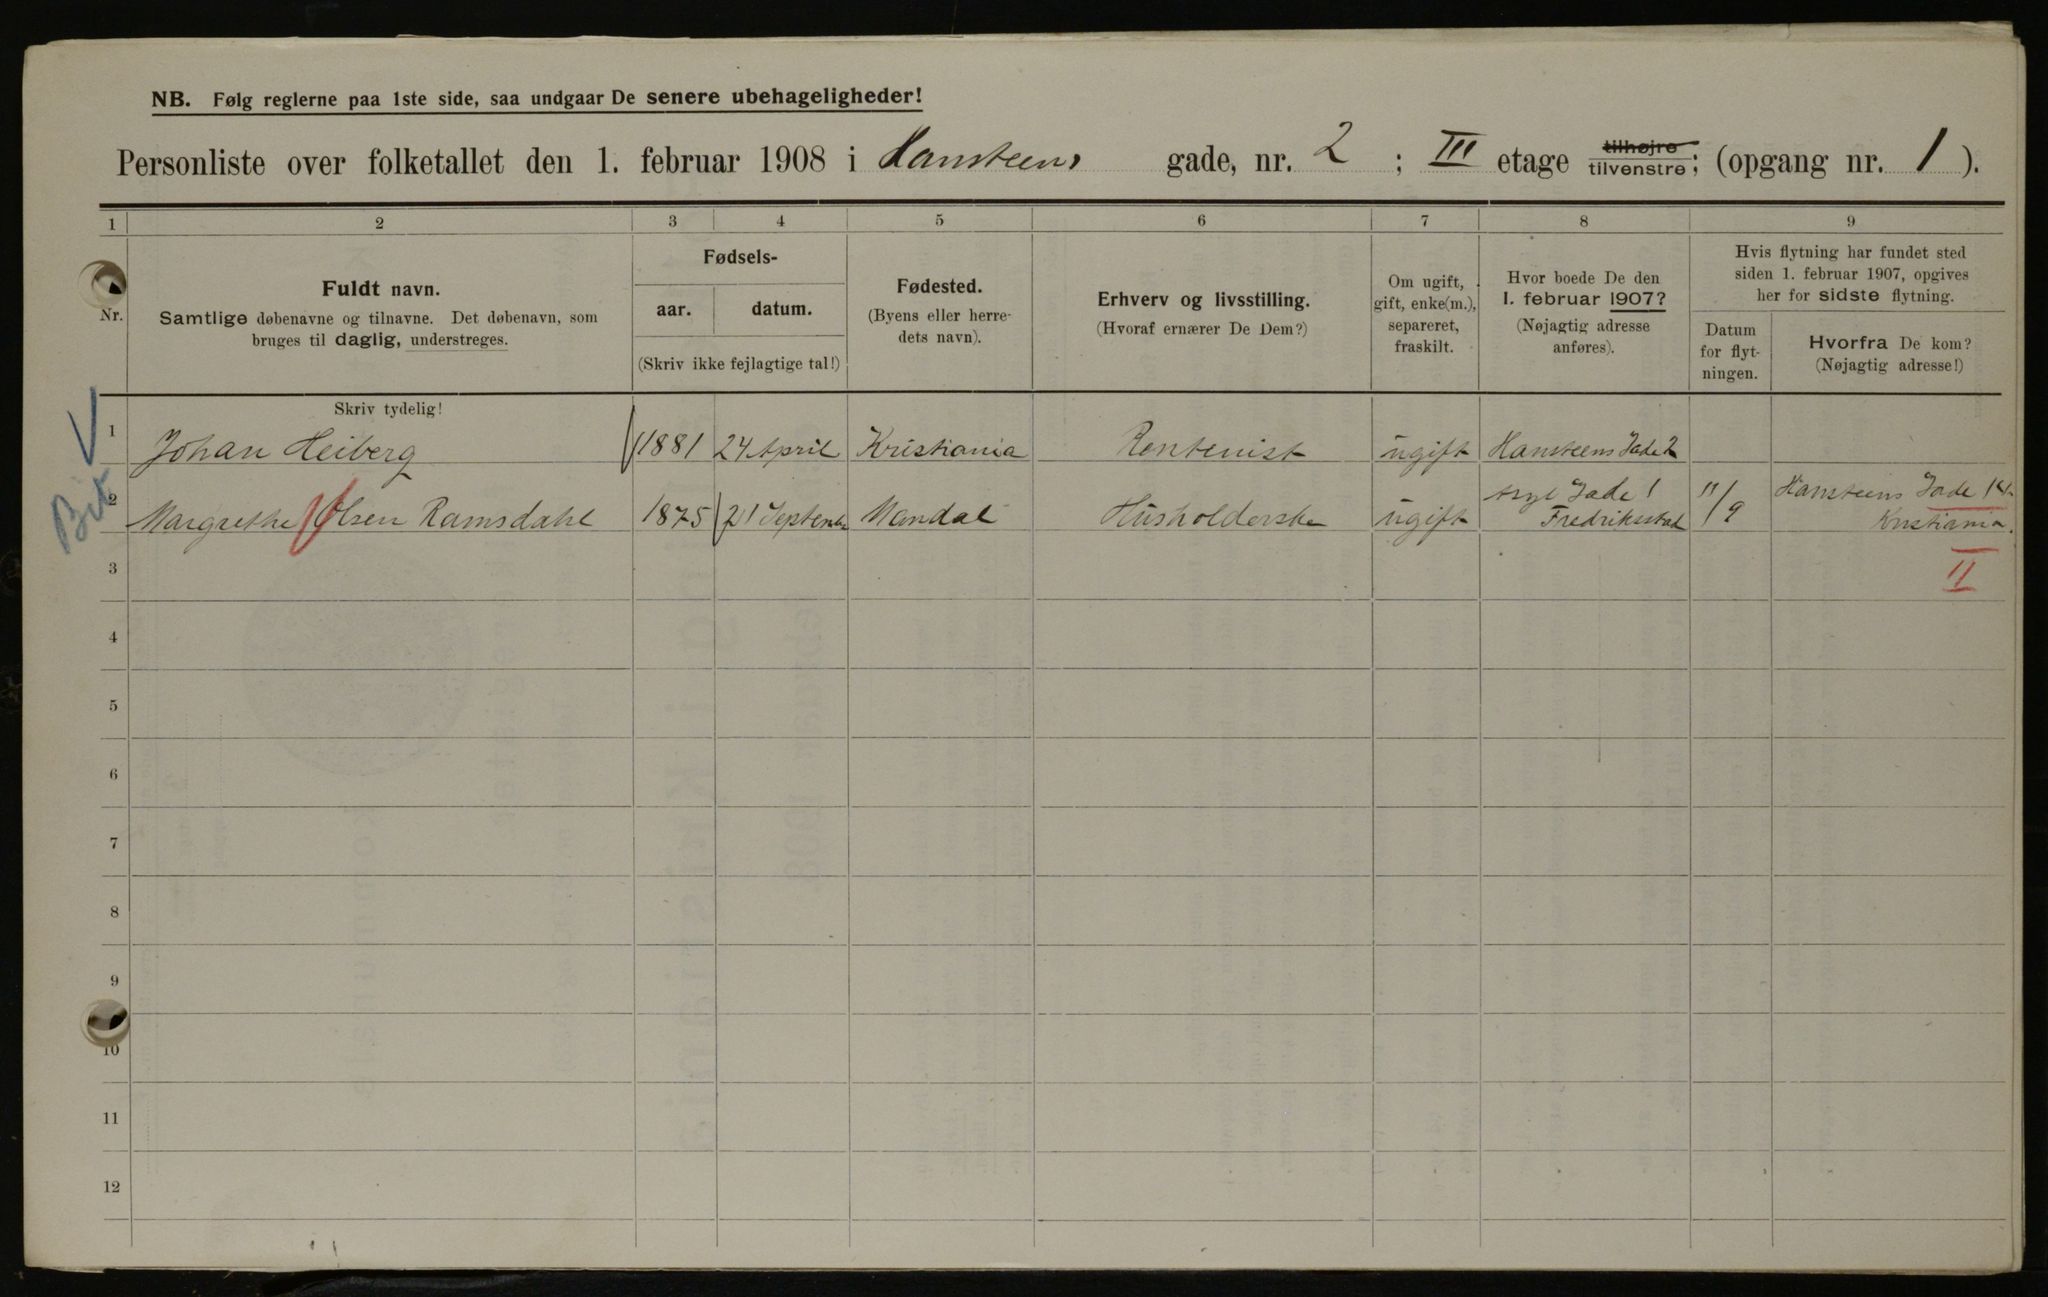 NB. Følg reglerne paa 1ste side, saa undgaar De senere ubehageligheder!
Personliste over folketallet den 1. februar 1908 i Hansteens gade, nr. 2 ; III etage tilhøjre tilvenstre; (opgang nr. 1 ).
1 2 3 4 5 6 7 8 9
Nr.
Fuldt navn.
Samtlige døbenavne og tilnavne. Det døbenavn, som
bruges til daglig, understreges.
Fødsels-
aar. datum.
(Skriv ikke fejlagtige tal!)
Fødested.
(Byens eller herre-
dets navn).
Erhverv og livsstilling.
(Hvoraf ernærer De Dem?)
Om ugift,
gift, enke(m.),
separeret,
fraskilt.
Hvor boede De den
1. februar 1907?
(Nøjagtig adresse
anføres).
Hvis flytning har fundet sted
siden 1. februar 1907, opgives
her for sidste flytning.
Datum
for flyt-
ningen.
Hvorfra De kom?
(Nøjagtig adresse!)
Skriv tydelig!
1 Johan Heiberg 1881 24 April Kristiania Rentenist ugift Hansteens Gade 2
2 Margrethe Olsen Ramsdahl 1875 21 September Mandal Husholderske ugift Gade 1
Fredriksstad 11/9 Hansteens Gade
Kristiania.
II
3
4
5
6
7
8
9
10
11
12